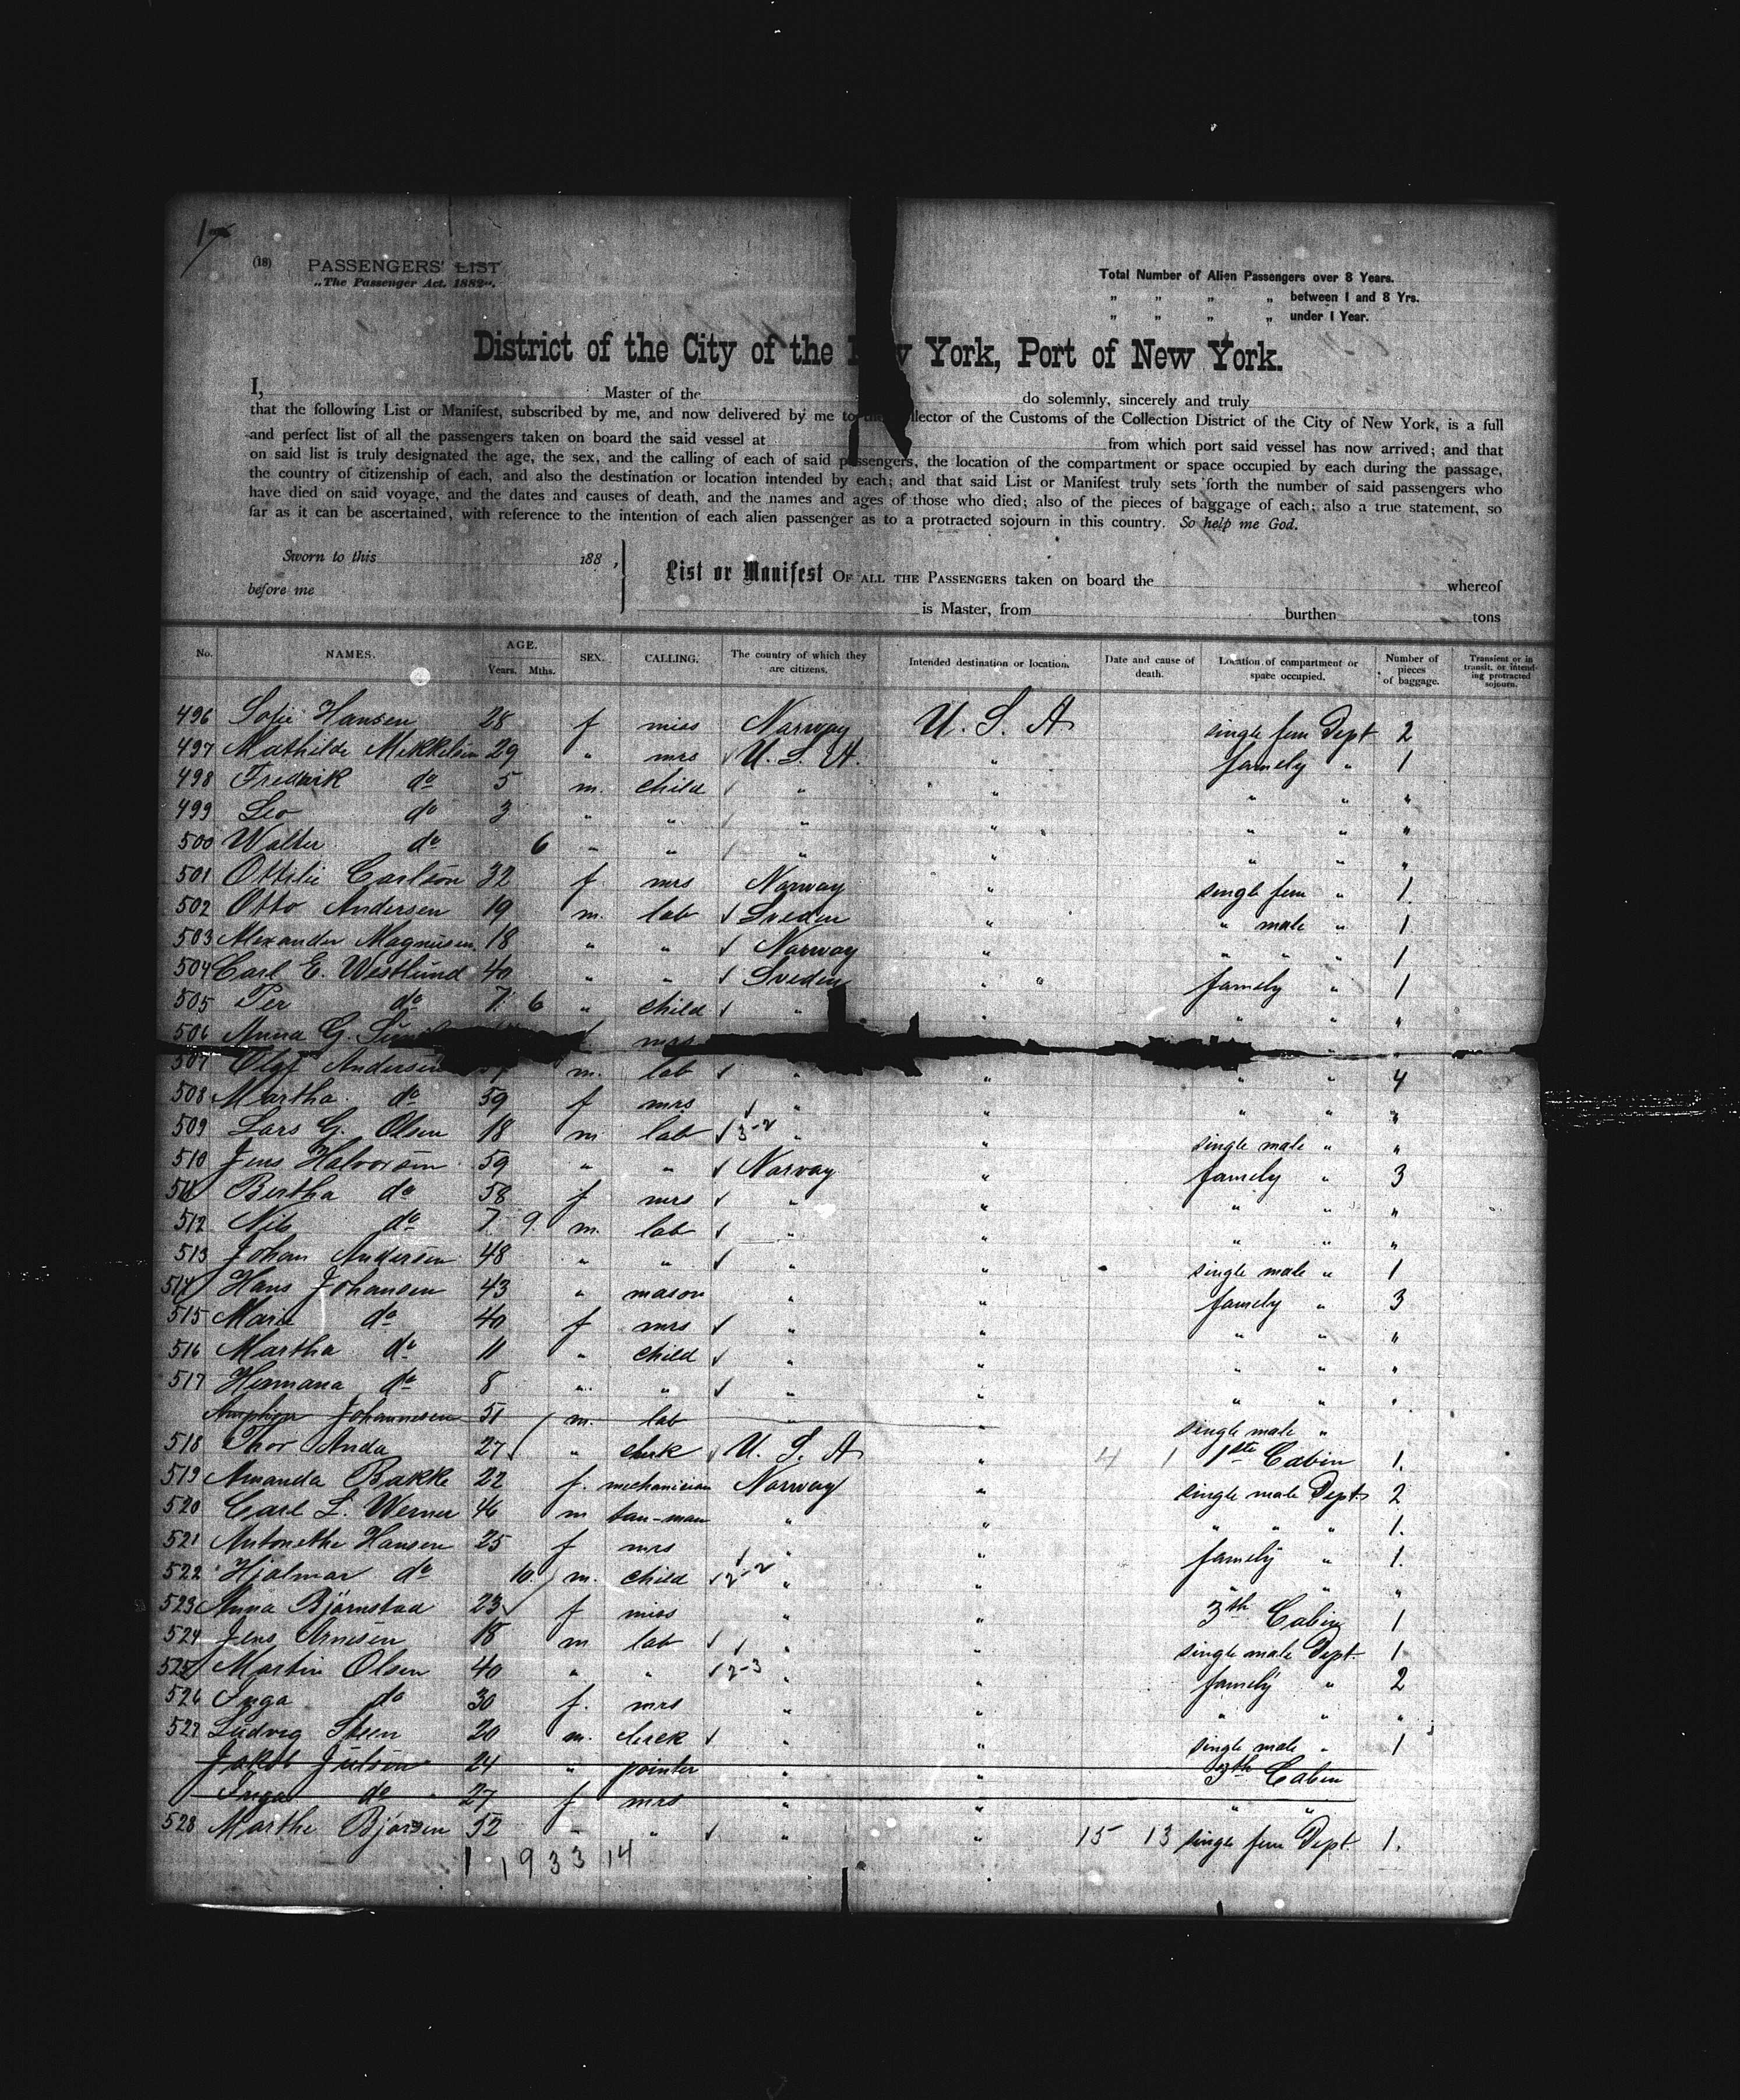 (18) PASSENGERS' LIST
„The Passenger Act. 1882".
Total Number of Alien Passengers over 8 Years.
„ „ „ „ between 1 and 8 Yrs.
„ „ „ „ under 1 Year.
District of the City of the York, Port of New York.
I, Master of the do solemnly, sincerely and truly
that the following List or Manifest, subscribed by me, and now delivered by me to the Collector of the Customs of the Collection District of the City of New York, is a full
and perfect list of all the passengers taken on board the said vessel at from which port said vessel has now arrived; and that
on said list is truly designated the age, the sex, and the calling of each of said passengers, the location of the compartment or space occupied by each during the passage,
the country of citizenship of each, and also the destination or location intended by each; and that said List or Manifest truly sets forth the number of said passengers who
have died on said voyage, and the dates and causes of death, and the names and ages of those who died; also of the pieces of baggage of each; also a true statement, so
far as it can be ascertained, with reference to the intention of each alien passenger as to a protracted sojourn in this country. So help me God.
Sworn to this 188 ,
before me
List or Manifest OF ALL THE PASSENGERS taken on board the whereof
is Master, from burthen tons
No. NAMES. AGE. Years. Mths. SEX. CALLING. The country of which they are citizens. Intended destination or location. Date and cause of death. Location of compartment or space occupied. Number of pieces of baggage. Transient or in transit, or intending protracted sojourn.
496 Sofie Hansen 28 f miss Norway U. S. A single fem Dept 2
497 Mathilde Mikkelsen 29 " mrs U. S. A. " family " 1
498 Fredrik do 5 m. child " " " " "
499 Leo do 3 " " " " " " "
500 Walter do 6 " " " " " " "
501 Ottilie Carlson 32 f. mrs Norway " single fem " 1.
502 Otto Andersen 19 m. lab Sveden " " male " 1
503 Alexander Magnusen 18 " " Norway " " " " 1
504 Carl E. Westlund 40 " " Sveden " family " 1
505 Per do 7 6 " child " " " " "
506 Anna G. mrs
507 Olof Andersen m. lab " " " " 4
508 Martha do 59 f mrs " " " " "
509 Lars G. Olsen 18 m. lab 3-2 " " single male " "
510 Jens Halvorsen 59 " " Norway " family " 3
511 Bertha do 58 f mrs " " " " "
512 Nils do 7 9. m. lab " " " " "
513 Johan Andersen 48 " " " " single male " 1
514 Hans Johansen 43 " mason " " family " 3
515 Marie do 40 f mrs " " " " "
516 Martha do 11 " child " " " " "
517 Hermana do 8 " " " " " " "
Johannesen 51 m. lab " " single male "
518 Thor Anda 27 " clerk U. S. A " 4 1 1ste Cabin 1.
519 Amanda Bakke 22 f. mechanician Norway " single male Dept 2
520 Carl L. Werner 46 m tan-man " " " " " 1.
521 Antonethe Hansen 25 f mrs " " family " 1.
522 Hjalmar do 10 m. child 2-2 " " " " "
523 Anna Bjørnstad 23 f miss " " 3th Cabin 1
524 Jens Arnesen 18 m lab " " single male Dept 1
525 Martin Olsen 40 " " 2-3 " " family " 2
526 Inga do 30 f. mrs " " " " "
527 Ludvig Steen 20 m. clerk " " single male " 1
Jakob 24 " pointer " " 3th Cabin
Inga do 27 f mrs " " " "
528 Marthe Bjørsen 52 " " " " 15 13 single fem Dept. 1.
1 1 9 3 3 14